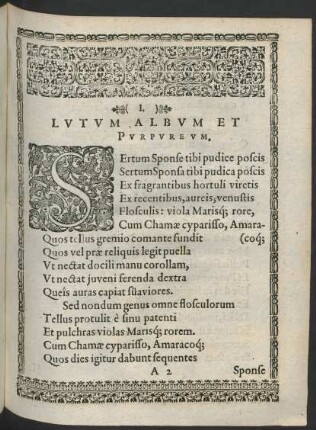 ( I. )
LVTVM ALBVM ET
PVRPVREVM.
SErtum Sponse tibi pudice poscis
Sertum Sponsa tibi pudica poscis
Ex fragrantibus hortuli viretis
Ex recentibus, aureis, venustis
Flosculis: viola Marisq; rore,
Cum Chamæ cyparisso, Amara-
Quos tellus gremio comante fundit (coq;
Quos vel præ reliquis legit puella
Vt nectat docili manu corollam,
Vt nectat juveni ferenda dextra
Queis auras capiat suaviores.
Sed nondum genus omne flosculorum
Tellus protulit è sinu patenti
Et pulchras violas Marisq; rorem.
Cum Chamæ cyparisso, Amaracoq;
Quos dies igitur dabunt sequentes
A 2 Sponse